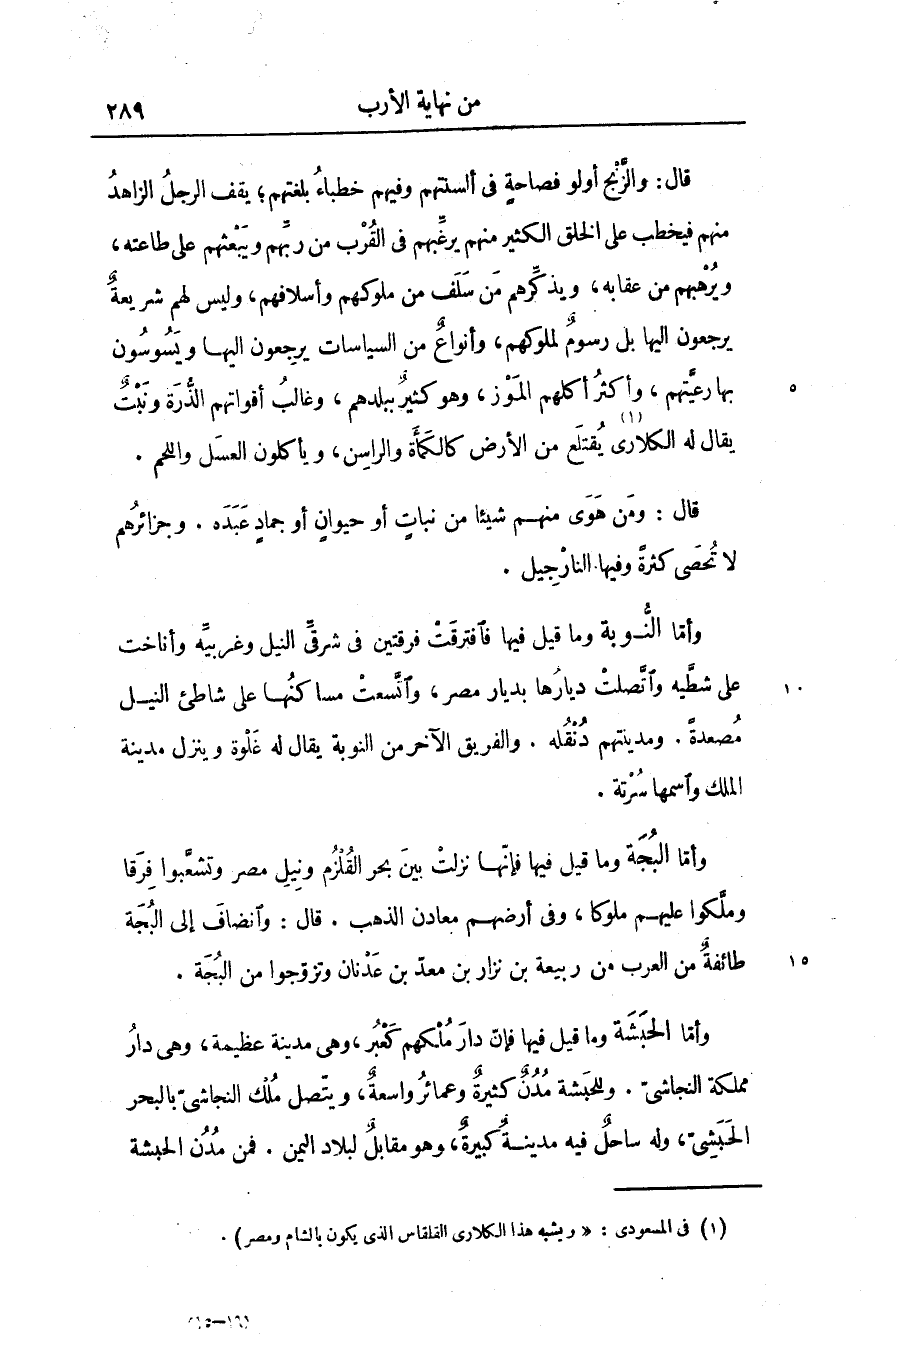 من نهاية الأرب ٢٨٩
قال: والزَّنْج أولو فصاحةٍ فى ألسنتهم وفيهم خطباءُ بلغتهم؛ يقف الرجلُ الزاهدُ
منهم فيخطب على الخلق الكثير منهم يرغِّبهم فى القُرْب من ربِّهم ويَبْعثهم على طاعته،
ويُرْهبهم من عقابه، ويذكِّرهم مَن سَلَف من ملوكهم وأسلافهم، وليس لهم شريعةٌ
يرجعون اليها بل رسومٌ لملوكهم، وأنواعٌ من السياسات يرجعون اليها ويَسُوسُون
بها رعيَّتهم، وأكثرُ أكلهم المَوْز، وهو كثيرٌ ببلدهم، وغالبُ أقواتهم الذُّرَة ونَبْتٌ ٥
يقال له الكلارى (١) يُقتلَع من الأرض كالكَمْأَة والراسِن، ويأكلون العسَل واللحم .
قال : ومَن هَوَى منهم شيئا من نباتٍ أو حيوانٍ أو جمادٍ عَبَدَه . وجزائرُهم
لا تُحصَى كثرةً وفيها النارْجِيل .
وأمّا النُّوبة وما قيل فيها فٱفترقَتْ فرقتين فى شرقىِّ النيل وغربيِّه وأناخت
على شطَّيه وٱتَّصلتْ ديارُها بديار مصر، وٱتَّسعتْ مساكنُها على شاطئ النيل ١٠
مُصعدةً . ومدينتهم دُنْقُله . والفريق الآخر من النوبة يقال له عَلْوة وينزل مدينة
الملك وٱسمها سُرْتة .
وأمّا البُجَة وما قيل فيها فإنّها نزلتْ بينَ بحر القُلْزُم ونيلِ مصر وتشعَّبوا فِرَقا
وملَّكوا عليهم ملوكا، وفى أرضهم معادن الذهب . قال : وٱنضافَ إلى البُجَة
طائفةٌ من العرب من ربيعة بن نزار بن معدّ بن عَدْنان وتزوّجوا من البُجَة . ١٥
وأمّا الحَبَشَة وما قيل فيها فإنّ دارَ مُلْكهم كَعْبَر، وهى مدينة عظيمة، وهى دارُ
مملكة النجاشىّ . وللحبَشة مُدُنٌ كثيرةٌ وعمائرُ واسعةٌ، ويتّصل مُلْك النجاشىّ بالبحر
الحَبَشِىّ، وله ساحلٌ فيه مدينةٌ كبيرةٌ، وهو مقابلٌ لبلاد اليمن . فمن مُدُن الحبشة
(١) فى المسعودى : « ويشبه هذا الكلارى القلقاس الذى يكون بالشام ومصر) .
(١٦-١٥)